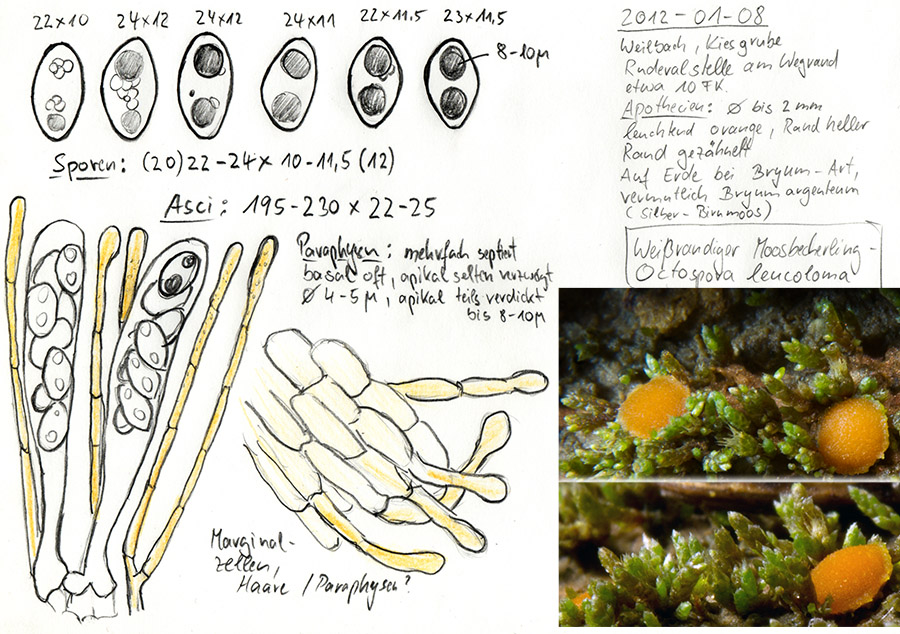 22×10 24×12 24×12 24×11 22×11,5 23×11,5
8-10µ
Sporen: (20)22-24× 10-11,5(12)
Asci: 195-230 × 22-25
Paraphysen: mehrfach septiert
basal oft, apikal selten verzweigt
Ø 4-5µ, apikal teils verdickt
bis 8-10µ
Marginal-
zellen,
Haare / Paraphysen?
2012-01-08
Weilbach, Kiesgrube
Ruderalstelle am Wegrand
etwa 10 FK.
Apothecien: Ø bis 2 mm
leuchtend orange, Rand heller
Rand gezähnelt
Auf Erde bei Bryum-Art,
vermutlich Bryum argenteum
(Silber-Birnmoos)
Weißrandiger Moosbecherling-
Octospora leucoloma